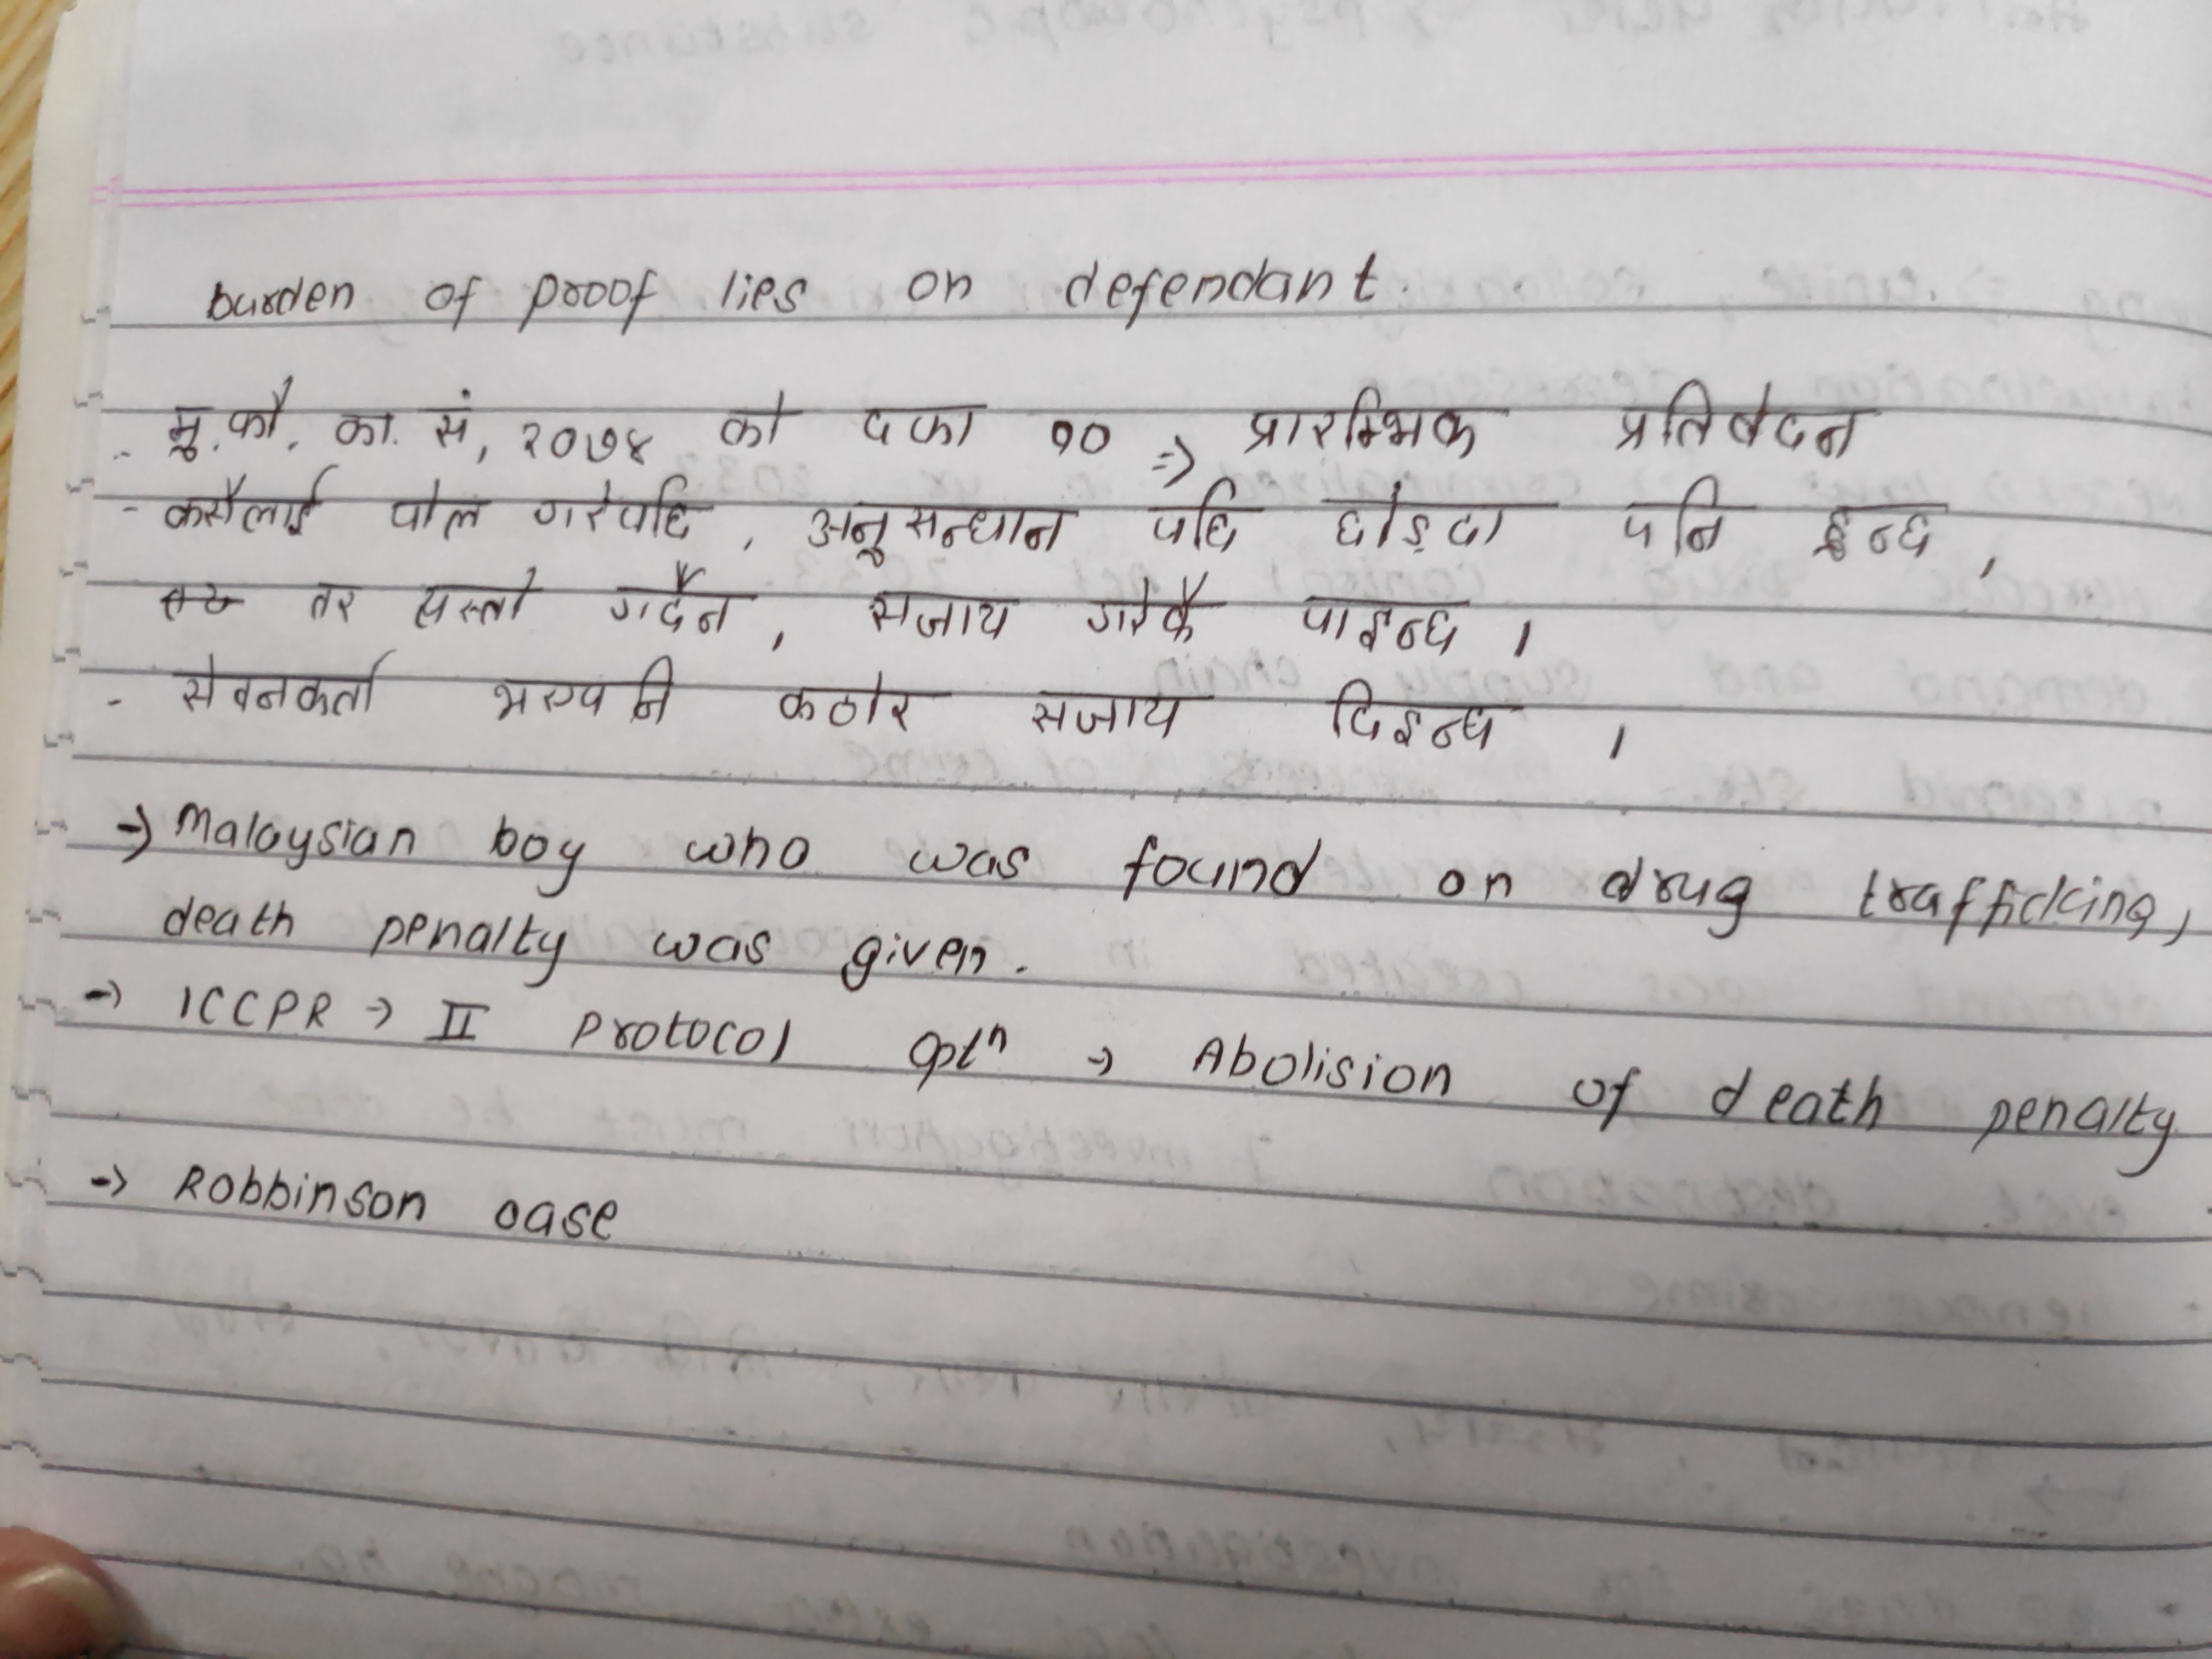 burden of proof lies on defendant.
मु.फौ. का. सं, २०७४ को दफा १० => प्रारम्भिक प्रतिवेदन
- कसैलाई पोल गरेपछि, अनुसन्धान पछि छोड्दा पनि हुन्छ,
तर त्यस्तो गर्दैन, सजाय गरेकै पाइन्छ ।
- सेवनकर्ता भएपनि कठोर सजाय दिइन्छ ।
-> Malaysian boy who was found on drug trafficking,
death penalty was given.
-> ICCPR -> II Protocol optⁿ -> Abolision of death penalty
-> Robbinson case